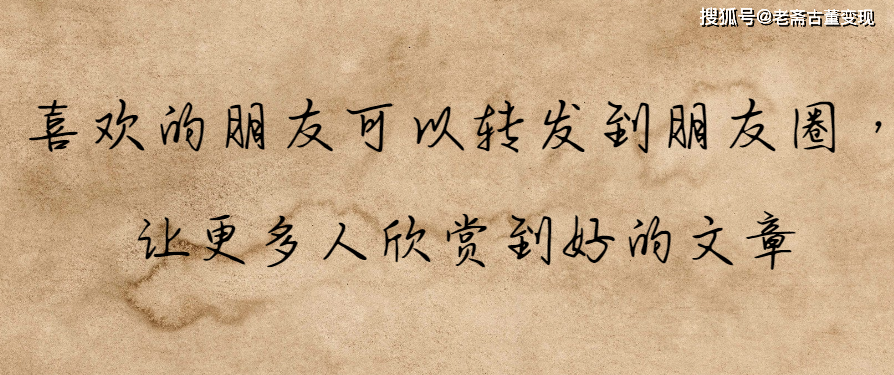 搜狐号@老斋古董变现
喜欢的朋友可以转发到朋友圈，
让更多人欣赏到好的文章